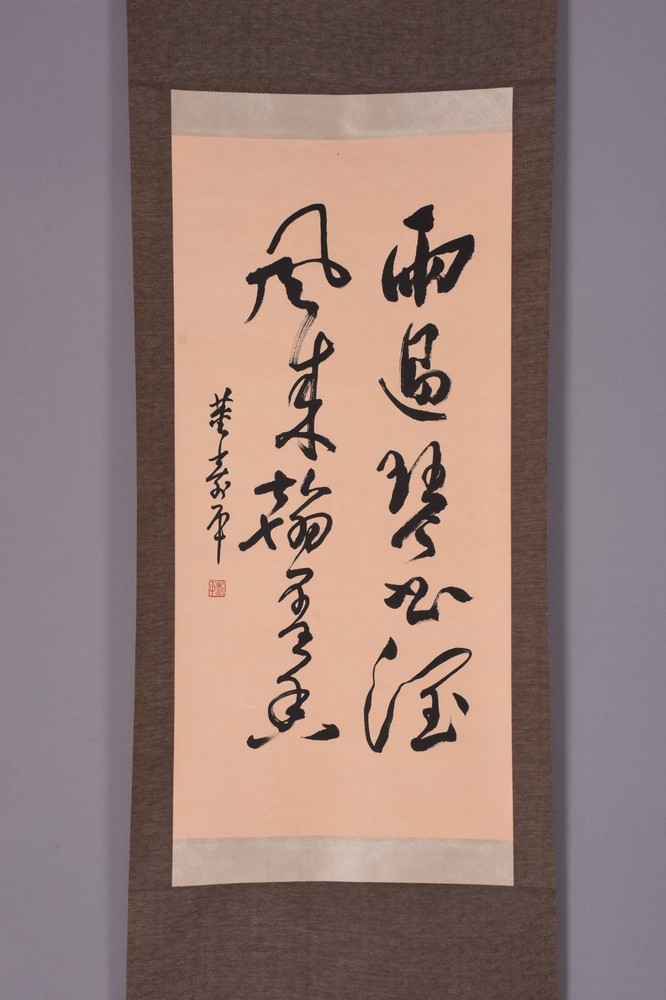 雨過琴書潤
風來翰墨香
董壽平